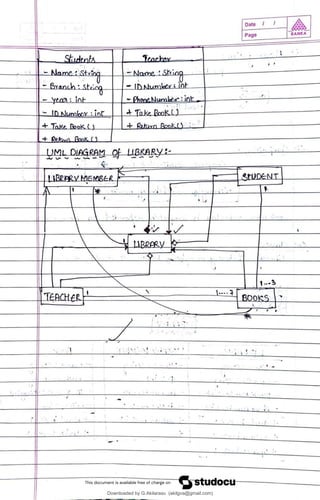 Date / /
Page
SANKA
Students
- Name : String
- Branch : String
- year : int
- ID Number : int
+ Take Book ( )
+ Return Book ( )
Teacher
- Name : String
- ID Number : int
- PhoneNumber : int
+ Take Book ( )
+ Return Book ( )
UML DIAGRAM Of LIBRARY :-
LIBRARY MEMBER
STUDENT
1
*
*
1
LIBRARY
1...3
TEACHER
1
1....7
BOOKS
*
This document is available free of charge on
studocu
Downloaded by G.Akilarasu (akilgva@gmail.com)